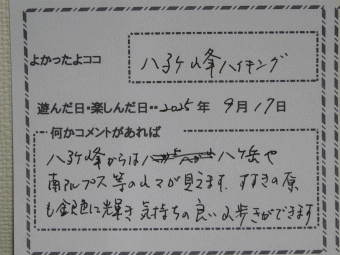 よかったよココ
八子ケ峰ハイキング
遊んだ日・楽しんだ日・・2025年 9月17日
何かコメントがあれば
八子ケ峰からは 八ケ岳や
南アルプス等の山々が見えます。すすきの原
も金色に輝き気持ちの良い山歩きができます